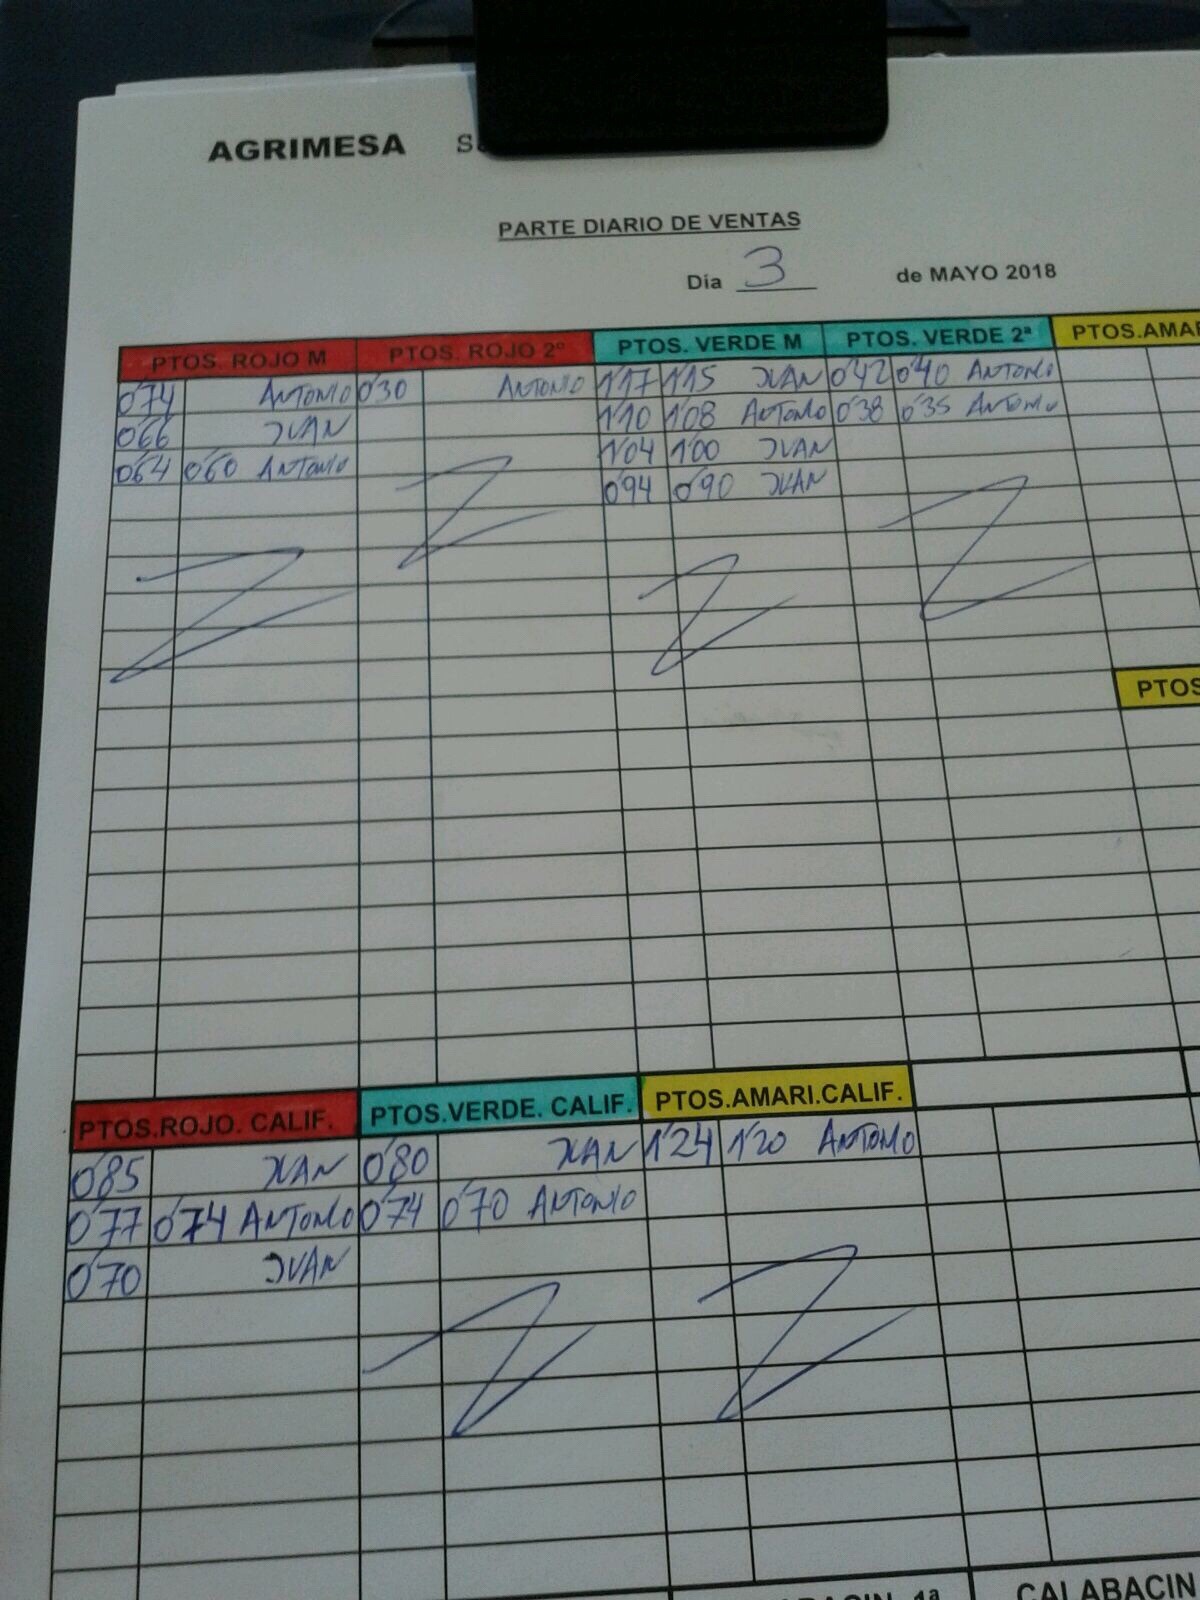 AGRIMESA S
PARTE DIARIO DE VENTAS
Día 3 de MAYO 2018
PTOS. ROJO M PTOS. ROJO 2º PTOS. VERDE M PTOS. VERDE 2ª PTOS.AMAR
0'74 ANTONIO 0'30 ANTONIO 1'17 1'15 JUAN 0'42 0'40 ANTONIO
0'66 JUAN 1'10 1'08 ANTONIO 0'38 0'35 ANTONIO
0'64 0'60 ANTONIO 1'04 1'00 JUAN
0'94 0'90 JUAN
PTOS
PTOS.ROJO. CALIF. PTOS.VERDE. CALIF. PTOS.AMARI.CALIF.
0'85 JUAN 0'80 JUAN 1'24 1'20 ANTONIO
0'77 0'74 ANTONIO 0'74 0'70 ANTONIO
0'70 JUAN
BACIN 1ª CALABACIN